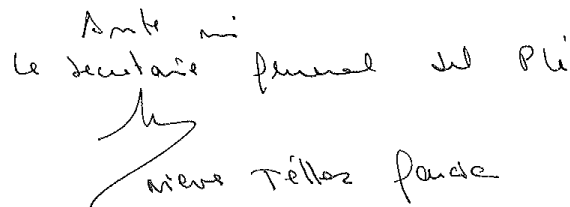 Ante mi
La secretaria general del Ple
Nieves Téllez García